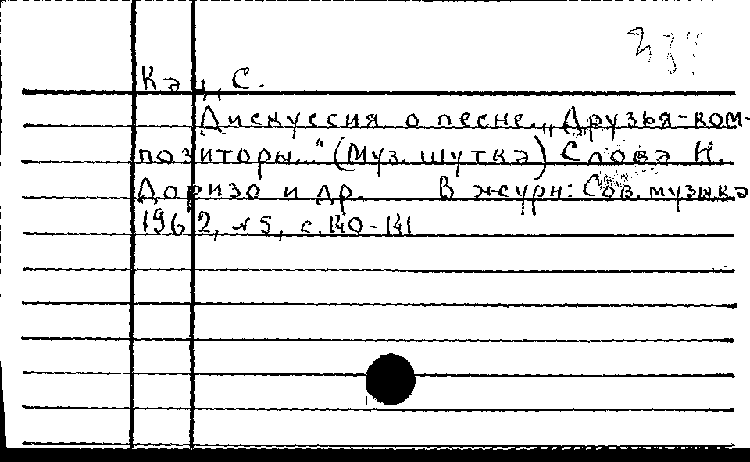 Кац, С.
Дискуссия о песне. „Друзья-ком-
позиторы..." (Муз. шутка) Слова Н.
Доризо и др. В журн: Сов. музыка
1962, №5, с. 140-141